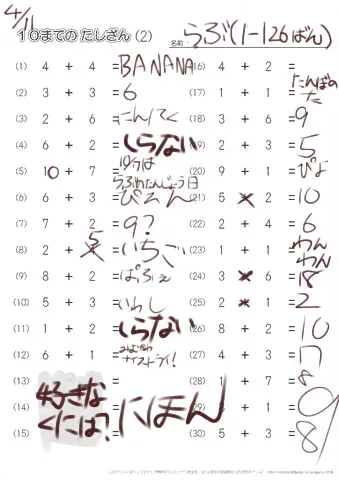 4/11
10までの たしざん (2)
名前 らぶ(1-126ばん)
(1) 4 + 4 =BANANA
(2) 3 + 3 =6
(3) 2 + 6 =にんてく
(4) 6 + 2 =しらない
(5) 10 + 7 =10/7は らぶのたんじょう日
(6) 6 + 3 =ぴえん
(7) 7 + 2 =9?
(8) 2 + 5 =いちご
(9) 8 + 2 =ぱふぇ
(10) 5 + 3 =いわし
(11) 1 + 2 =しらない
(12) 6 + 1 = ナイストライ!
(13)
(14)
(15)
好きな
くには?
にほん
(16) 4 + 2 =たんぼの た
(17) 1 + 1 =
(18) 3 + 6 =9
(19) 2 + 3 =5
(20) 9 + 1 =ぴよ
(21) 5 × 2 =10
(22) 2 + 4 =6
(23) 1 + 1 =わん わん
(24) 3 × 6 =18
(25) 2 × 1 =2
(26) 8 + 2 =10
(27) 4 + 3 =7
(28) 1 + 7 =8
(29) 8 + 1 =9
(30) 5 + 3 =8